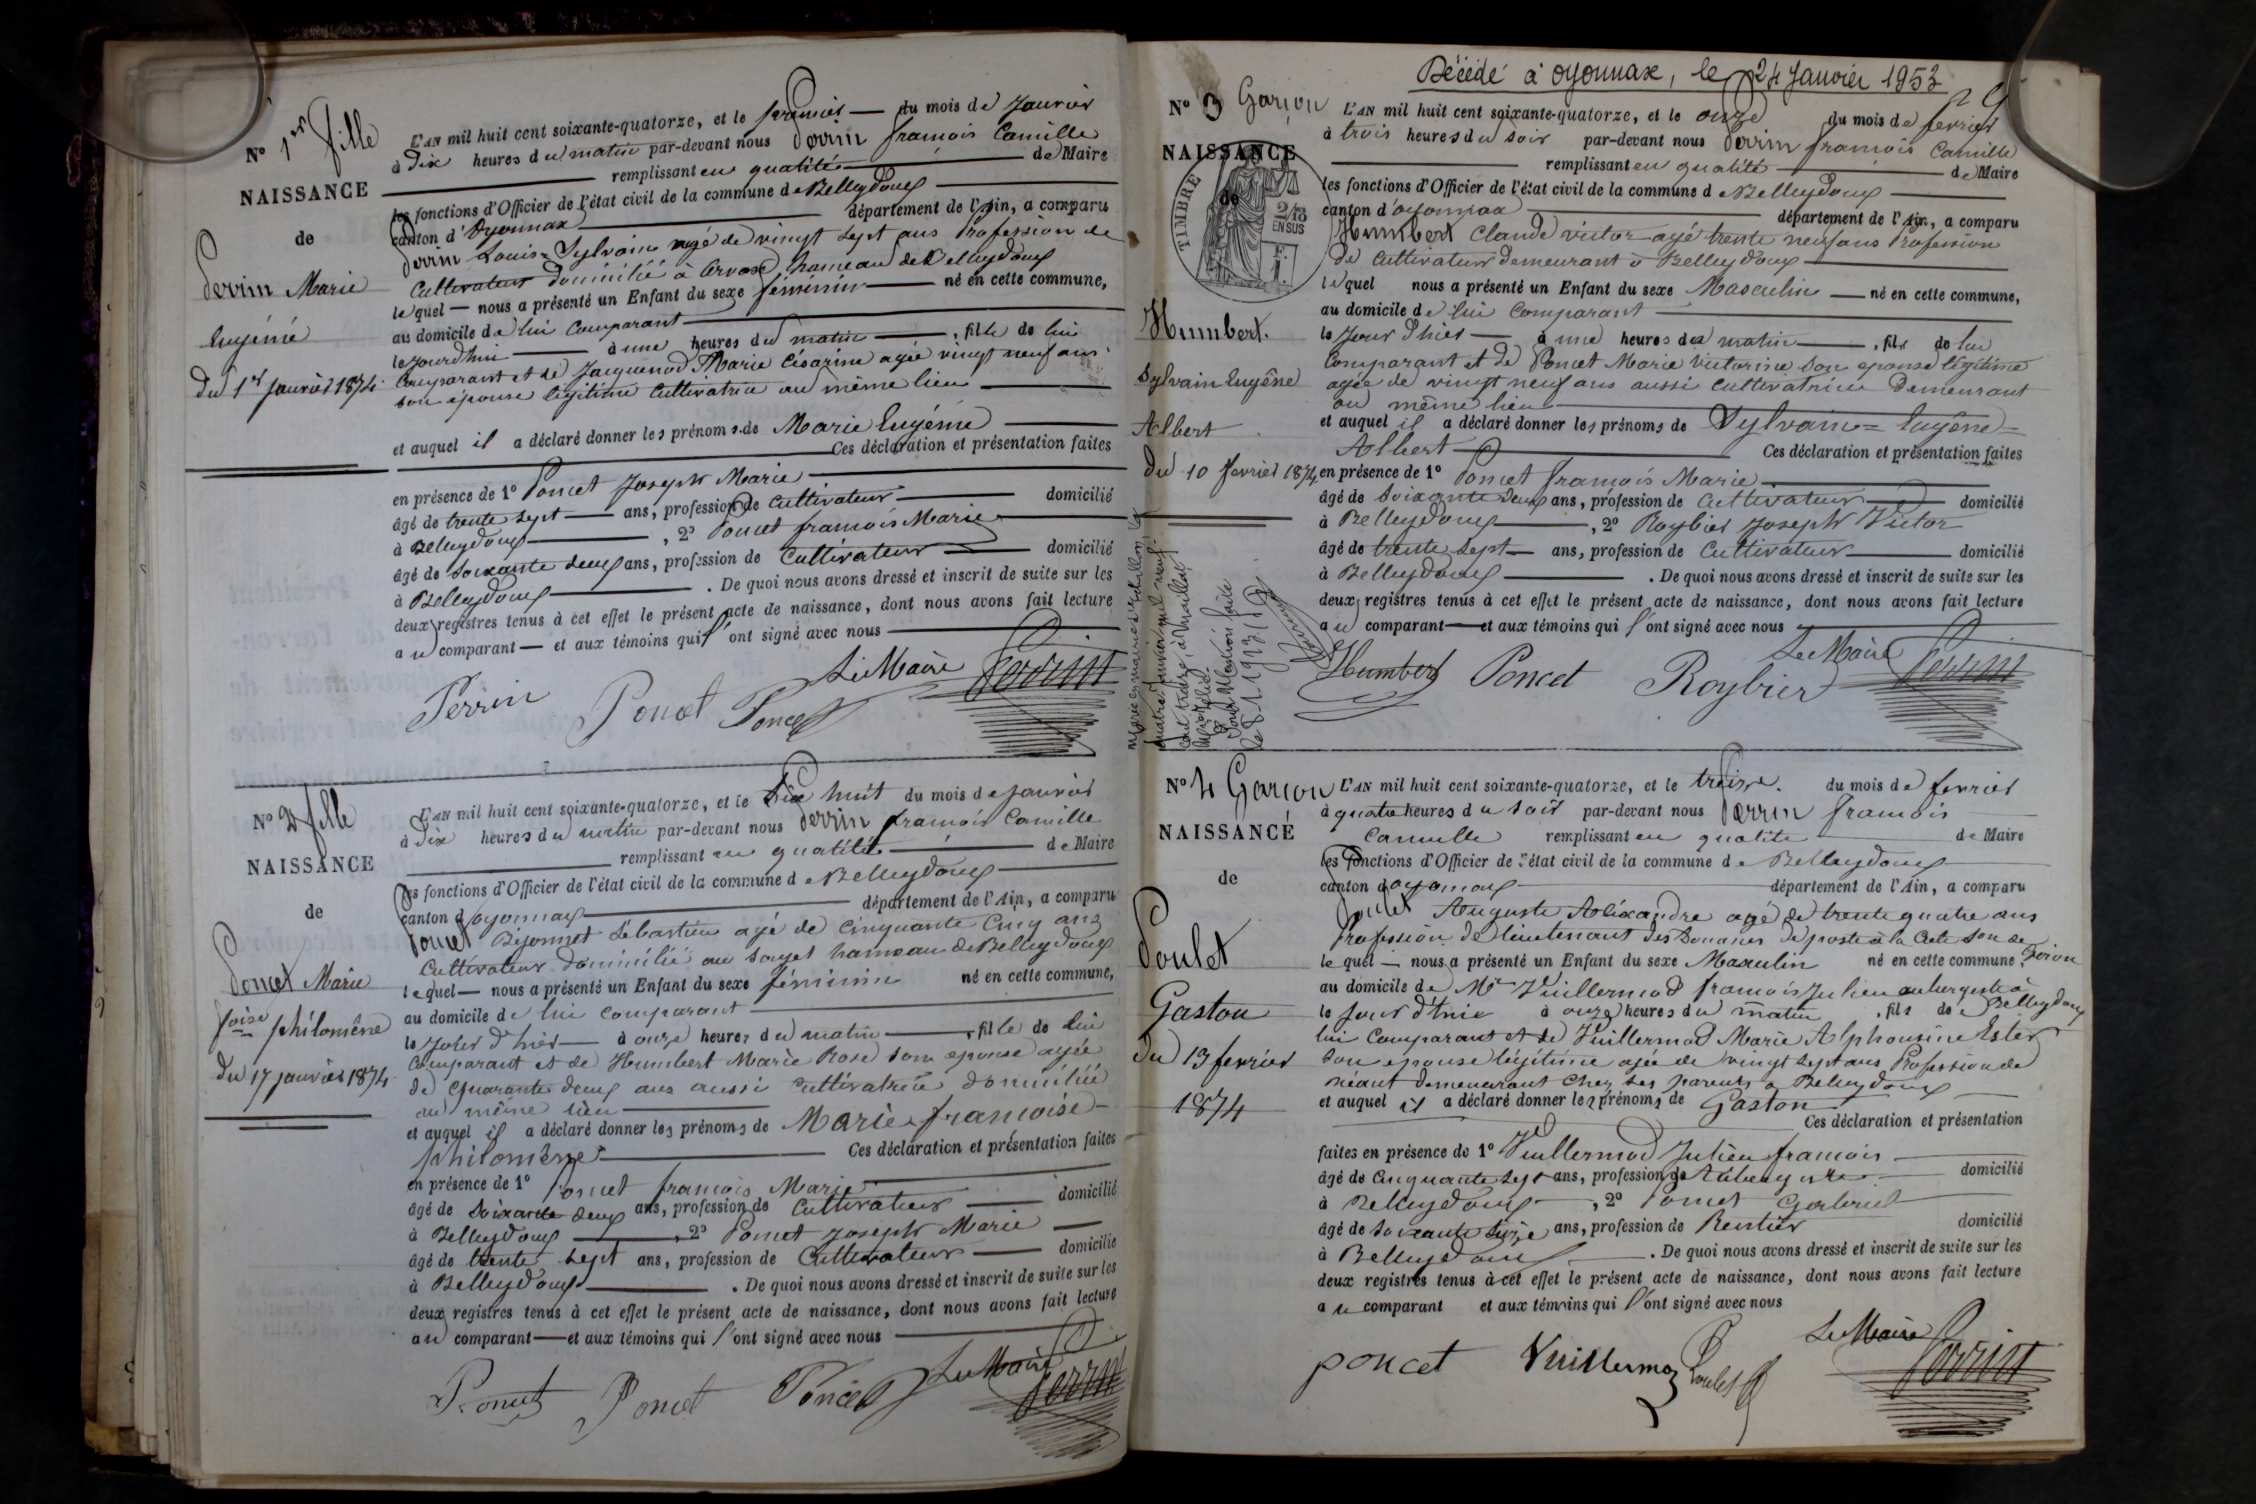 N° 1er fille
NAISSANCE
de
Perrin Marie
Eugénie
du 1er Janvier 1874.
L'AN mil huit cent soixante-quatorze, et le premier — du mois de Janvier
à dix heures du matin par-devant nous Perrin françois Camille
remplissant en qualité de Maire
les fonctions d'Officier de l'état civil de la commune de Belleydoux
canton d'Oyonnax département de l'Ain, a comparu
Perrin Louis-Sylvain agé de vingt sept ans Profession de
Cultivateur domicilié à hameau de Belleydoux
lequel — nous a présenté un Enfant du sexe féminin — né en cette commune,
au domicile de lui Comparant
le jourdhui à une heures du matin , fille de lui
Comparant et de Jacquenod Marie Césarine agée vingt neuf ans
son epouse légitime Cultivatrice au même lieu
et auquel il a déclaré donner les prénoms de Marie Eugénie
Ces déclaration et présentation faites
en présence de 1° Poncet Joseph Marie
âgé de trente sept — ans, profession de Cultivateur domicilié
à Belleydoux , 2° Poncet françois Marie
âgé de soixante deux ans, profession de Cultivateur domicilié
à Belleydoux . De quoi nous avons dressé et inscrit de suite sur les
deux registres tenus à cet effet le présent acte de naissance, dont nous avons fait lecture
au comparant — et aux témoins qui l'ont signé avec nous
Le Maire
Perrin Poncet Poncet Perrin
N° 2 fille
NAISSANCE
de
Poncet Marie
foise philomène
du 17 janvier 1874
L'AN mil huit cent soixante-quatorze, et le dix huit du mois de janvier
à dix heures du matin par-devant nous Perrin françois Camille
remplissant en qualité de Maire
les fonctions d'Officier de l'état civil de la commune de Belleydoux
canton d'oyonnax département de l'Ain, a comparu
Poncet Sébastien agé de cinquante Cinq ans
Cultivateur domicilié au hameau de Belleydoux
lequel — nous a présenté un Enfant du sexe féminin né en cette commune,
au domicile de lui comparant
le jour d'hier — à onze heures du matin , fille de lui
Comparant et de Humbert Marie Rose son epouse agée
de quarante deux ans aussi cultivatrice domiciliée
au même lieu
et auquel il a déclaré donner les prénoms de Marie françoise
philomène Ces déclaration et présentation faites
en présence de 1° Poncet françois Marie
âgé de soixante deux ans, profession de Cultivateur domicilié
à Belleydoux , 2° Poncet Joseph Marie
âgé de trente sept ans, profession de Cultivateur domicilié
à Belleydoux . De quoi nous avons dressé et inscrit de suite sur les
deux registres tenus à cet effet le présent acte de naissance, dont nous avons fait lecture
au comparant — et aux témoins qui l'ont signé avec nous
Le Maire
Poncet Poncet Poncet Perrin
Décédé à Oyonnax, le 24 Janvier 1953
N° 3 Garçon
NAISSANCE
de
TIMBRE
2/10
EN SUS
Humbert.
Sylvain Eugêne
Albert
du 10 fevrier 1874
L'AN mil huit cent soixante-quatorze, et le onze du mois de fevrier
à trois heures du soir par-devant nous Perrin françois Camille
remplissant en qualité de Maire
les fonctions d'Officier de l'état civil de la commune de Belleydoux
canton d'oyonnax département de l'Ain, a comparu
Humbert Claude victor agé trente neuf ans Profession
de Cultivateur demeurant à Belleydoux
lequel nous a présenté un Enfant du sexe Masculin — né en cette commune,
au domicile de lui Comparant
le jour d'hier — à une heures du matin , fils de lui
Comparant et de Poncet Marie Victorine son epouse légitime
agée de vingt neuf ans aussi cultivatrice Demeurant
au même lieu
et auquel il a déclaré donner les prénoms de Sylvain = Eugêne =
Albert Ces déclaration et présentation faites
en présence de 1° Poncet françois Marie
âgé de soixante deux ans, profession de Cultivateur domicilié
à Belleydoux , 2° Roybier Joseph Victor
âgé de trente sept — ans, profession de Cultivateur domicilié
à Belleydoux . De quoi nous avons dressé et inscrit de suite sur les
deux registres tenus à cet effet le présent acte de naissance, dont nous avons fait lecture
au comparant — et aux témoins qui l'ont signé avec nous
Le Maire
Humbert Poncet Roybier Perrin
quatre janvier mil neuf
cent treize, à
Mention faite
le 8-1-1913
N° 4 Garçon
NAISSANCE
de
Poulet
Gaston
du 13 fevrier
1874
L'AN mil huit cent soixante-quatorze, et le treize du mois de fevrier
à quatre heures du soir par-devant nous Perrin françois
Camille remplissant en qualité de Maire
les fonctions d'Officier de l'état civil de la commune de Belleydoux
canton d'oyonnax département de l'Ain, a comparu
Poulet Auguste Aléxandre agé de trente quatre ans
Profession de lieutenant des Douanes de poste à la
lequel — nous a présenté un Enfant du sexe Masculin né en cette commune,
au domicile de Mr Vuillermod françois Julien aubergiste à Belleydoux
le jour d' à onze heures du matin , fils de
lui Comparant et de Vuillermod Marie Alphonsine Ester
son epouse légitime agée de vingt sept ans Profession de
néant demeurant chez ses parents à Belleydoux
et auquel il a déclaré donner les prénoms de Gaston
Ces déclaration et présentation
faites en présence de 1° Vuillermod Julien françois
âgé de cinquante sept ans, profession de Aubergiste domicilié
à Belleydoux , 2° Poncet Gabriel
âgé de soixante ans, profession de Rentier domicilié
à Belleydoux . De quoi nous avons dressé et inscrit de suite sur les
deux registres tenus à cet effet le présent acte de naissance, dont nous avons fait lecture
au comparant et aux témoins qui l'ont signé avec nous
Le Maire
poncet Vuillermoz Poulet Perrin